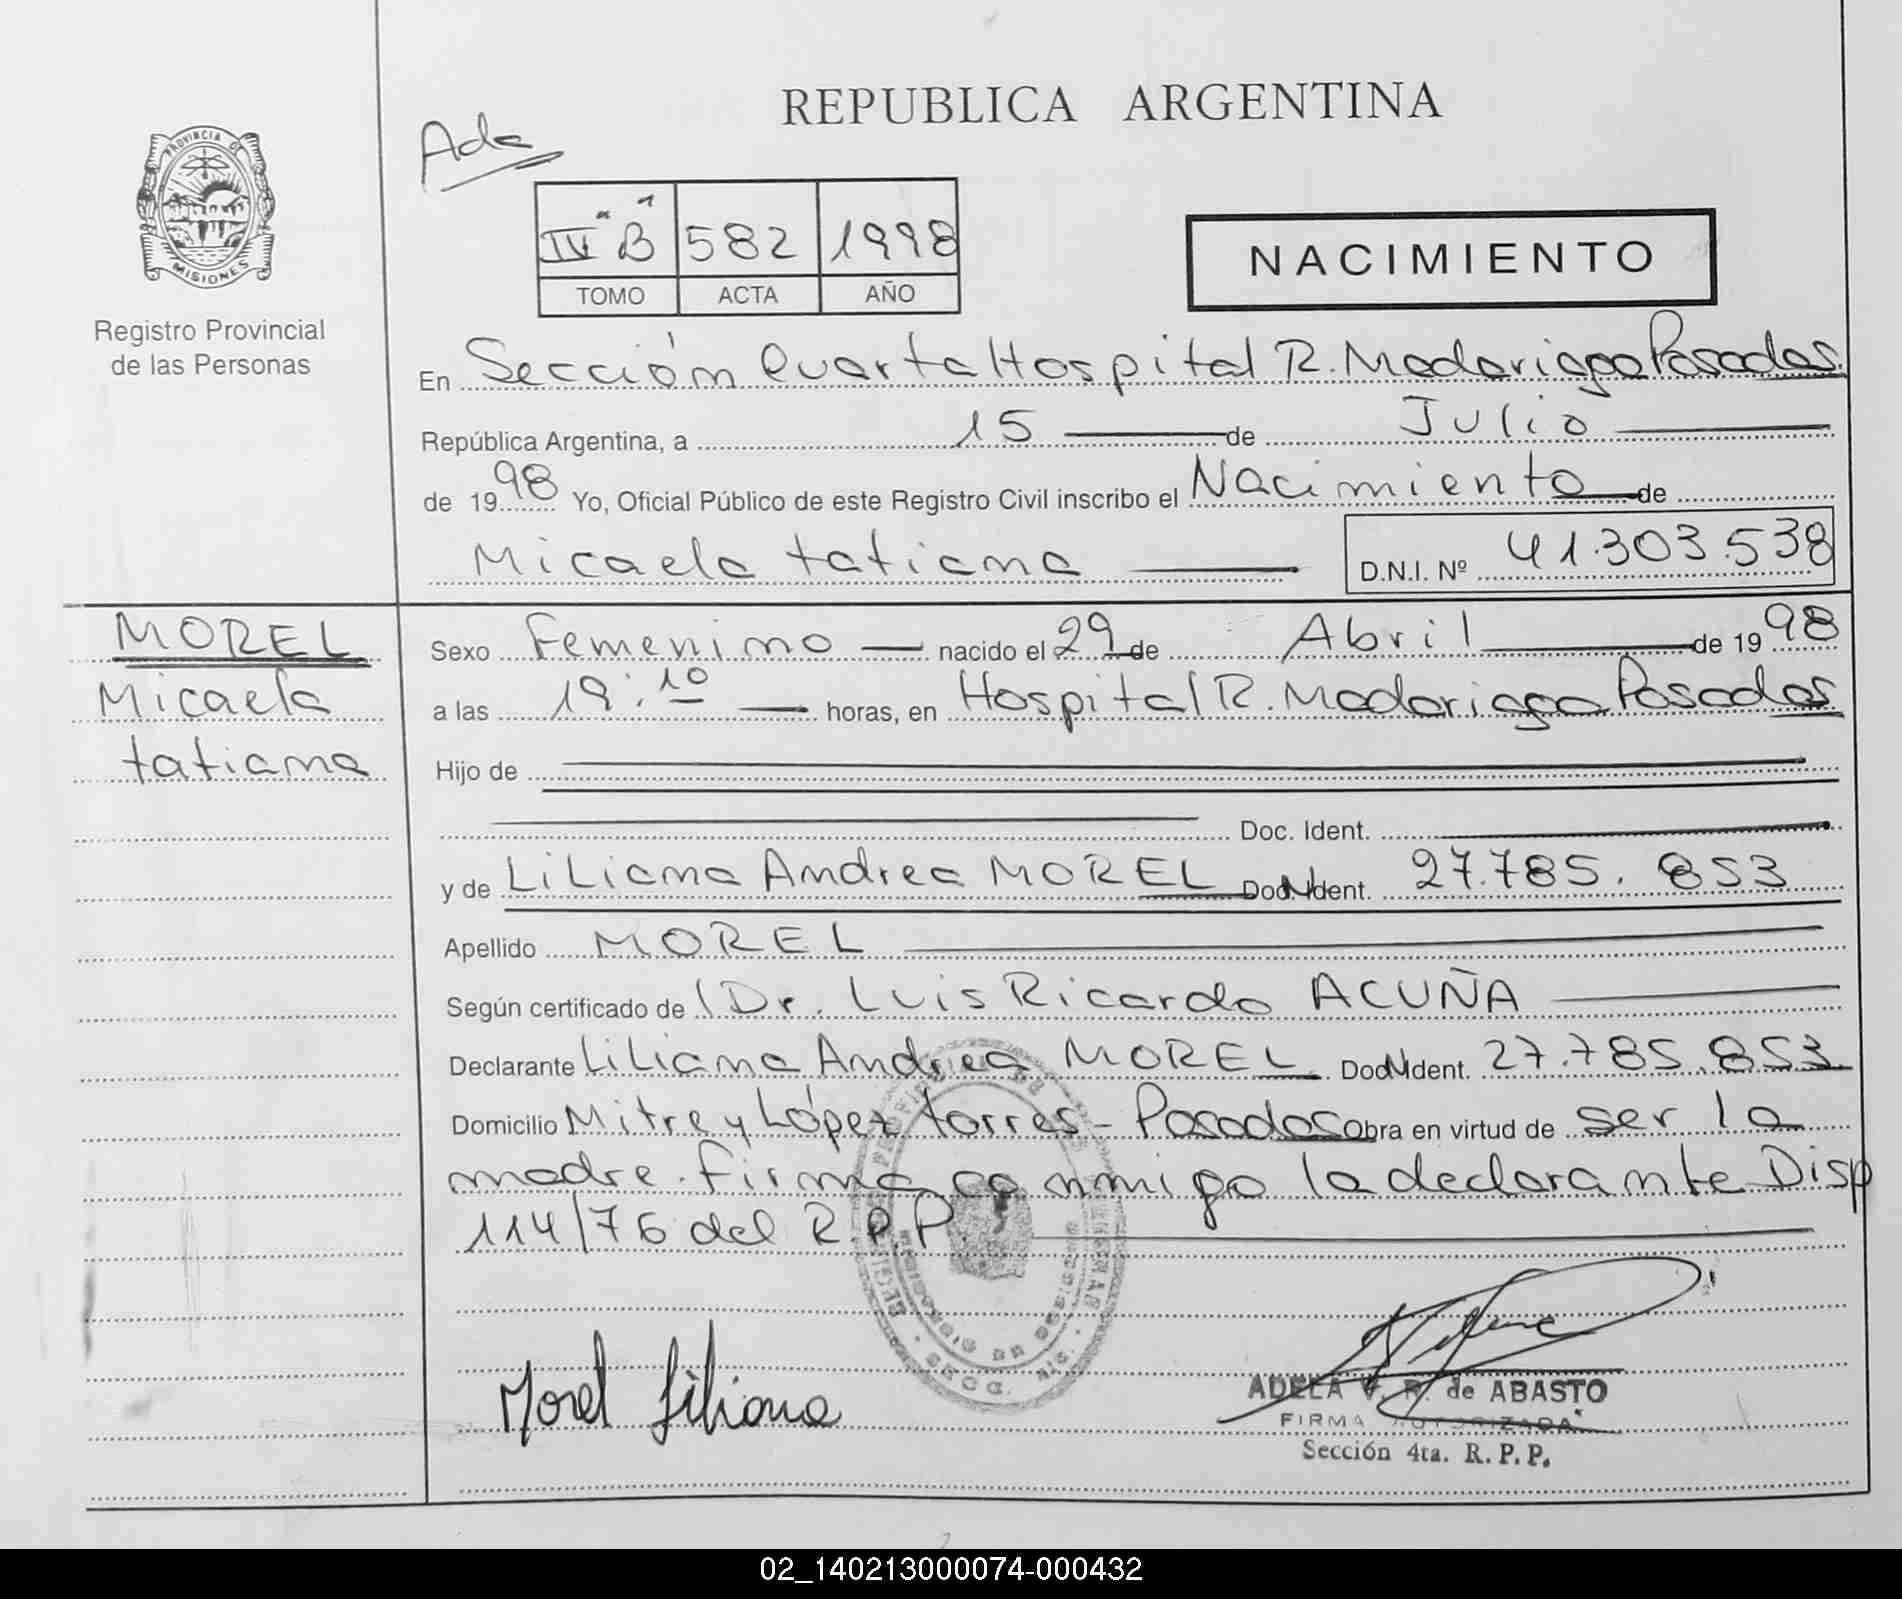 REPUBLICA ARGENTINA
Ada
PROVINCIA DE
MISIONES
Registro Provincial
de las Personas
IV "B" 582 1998
TOMO ACTA AÑO
NACIMIENTO
En Sección Cuarta Hospital R. Madariaga Posadas.
República Argentina, a 15 de Julio
de 1998 Yo, Oficial Público de este Registro Civil inscribo el Nacimiento de
Micaela tatiana D.N.I. Nº 41.303.538
MOREL
Micaela
tatiana
Sexo Femenino nacido el 29 de Abril de 1998
a las 19:10 horas, en Hospital R. Madariaga Posadas
Hijo de
Doc. Ident.
y de Liliana Andrea MOREL Doc. Ident. 27.785.853
Apellido MOREL
Según certificado de Dr. Luis Ricardo ACUÑA
Declarante Liliana Andrea MOREL Doc. Ident. 27.785.853
Domicilio Mitre y López torres - Posadas Obra en virtud de ser la
madre. firma conmigo la declarante Disp
114/76 del R.P.P.
Morel Liliana
ADELA V. R. de ABASTO
FIRMA AUTORIZADA
Sección 4ta. R. P. P.
02_140213000074-000432